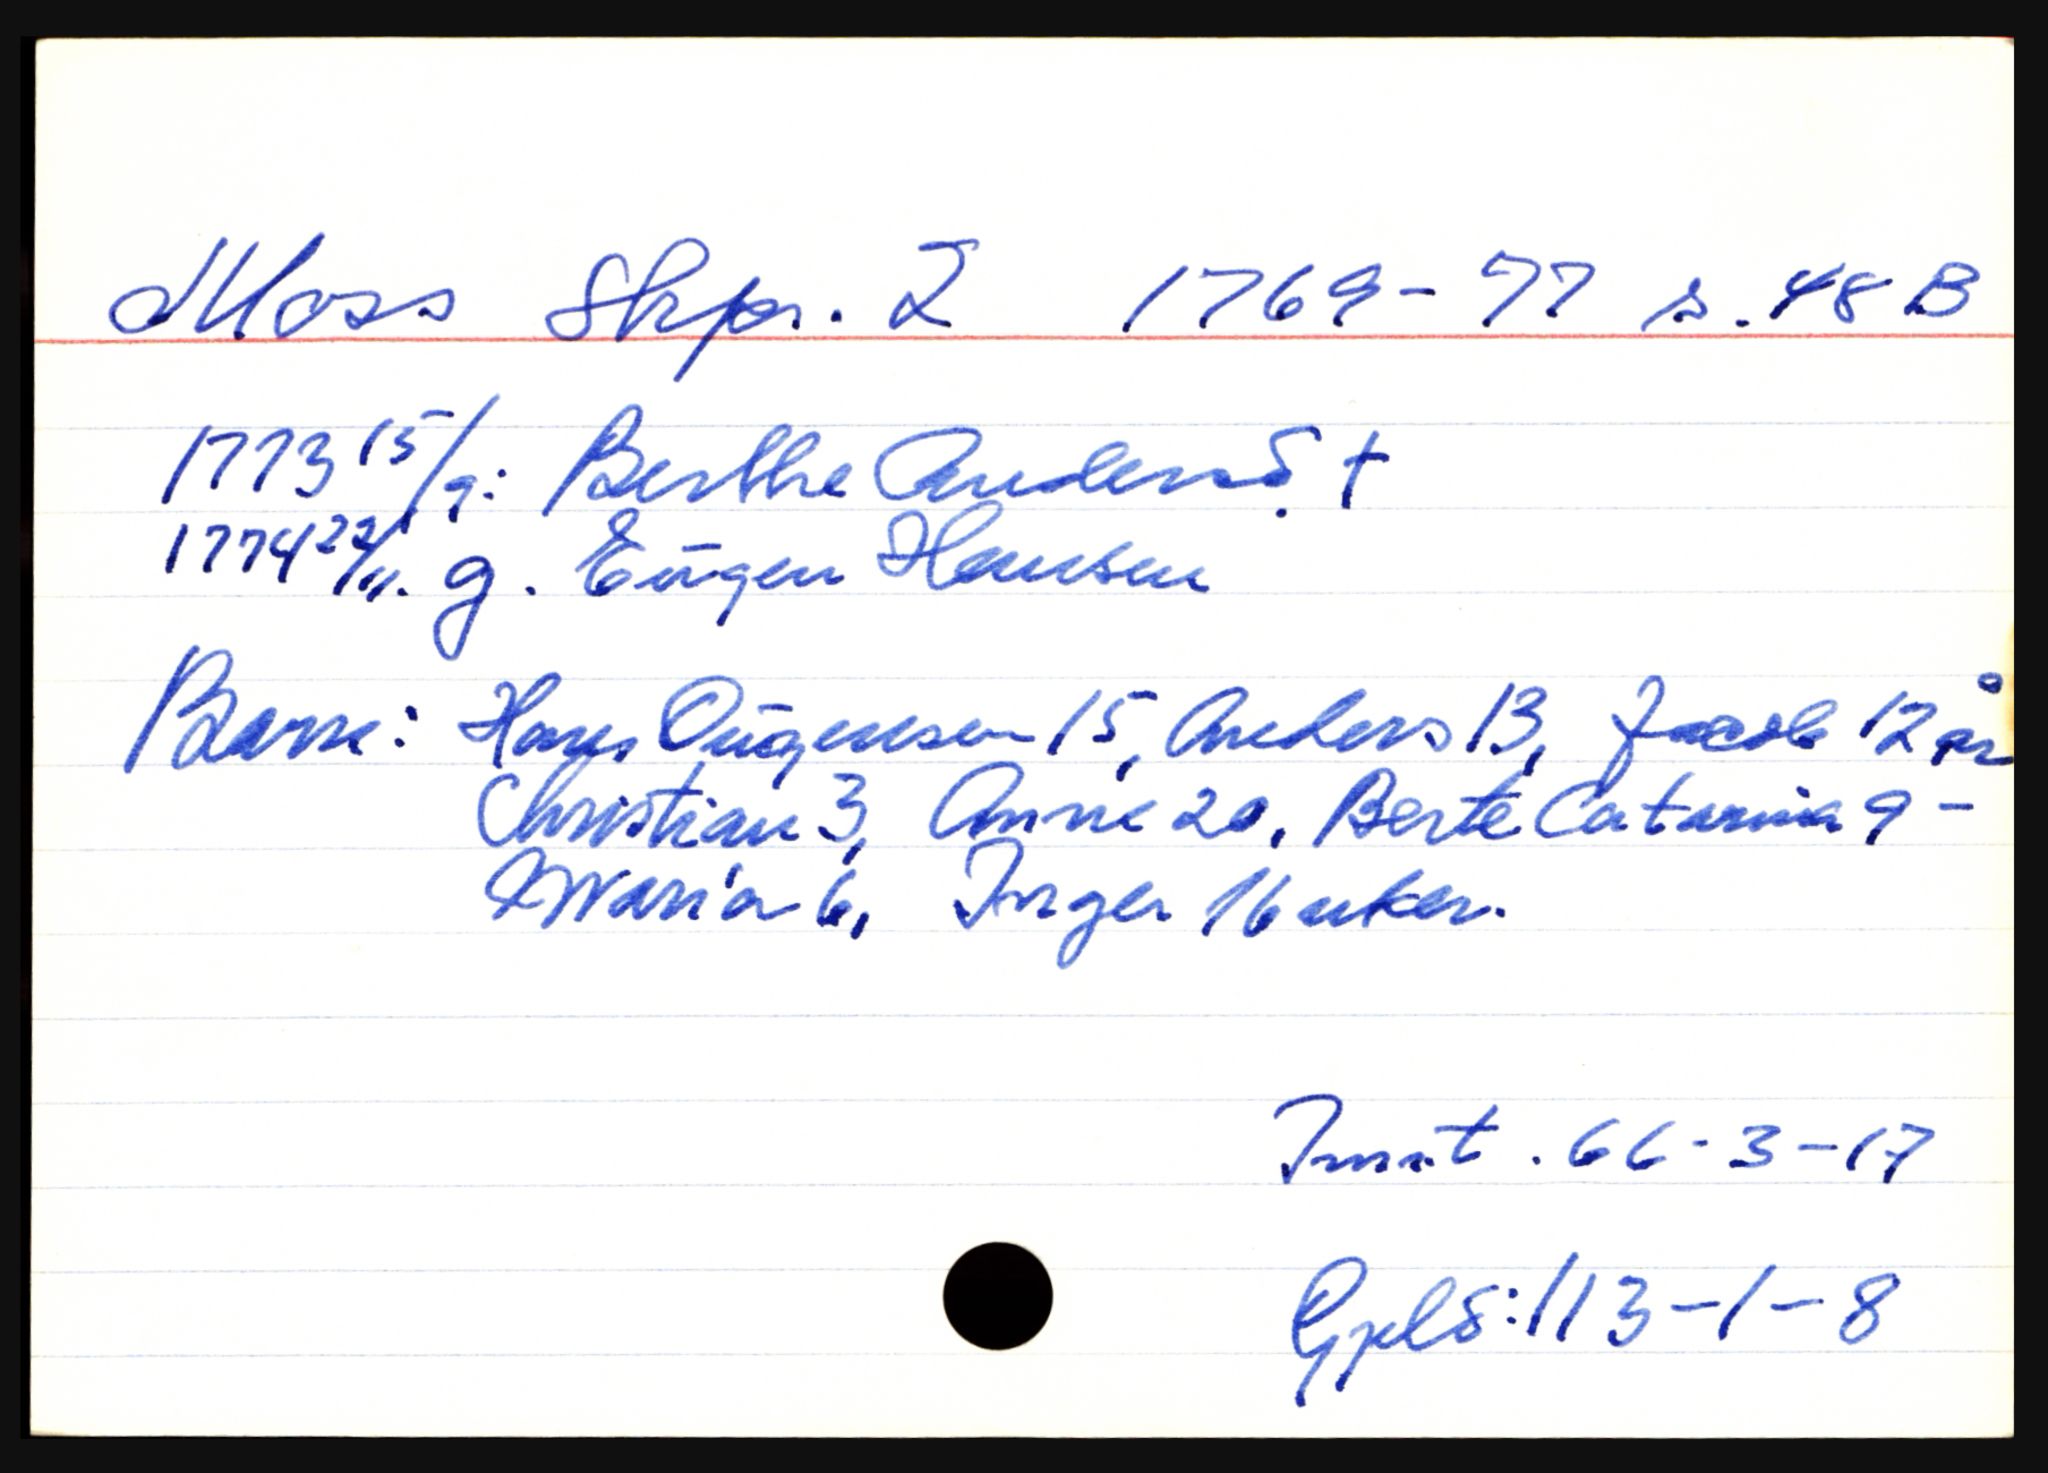 Moss Skpr. I 1769-77 s. 48 B
1773 15/9: Berthe AndersD. †
1774 22/11. g. Eugen Hansen
Barn: Hans Eugensen 15, Anders 13, Jacob 12 år
Christian 3, Anne 20, Berte Catarina 9 -
Maria 6, Inger 16 uker.
Innt. 66-3-17
Gjeld: 113-1-8